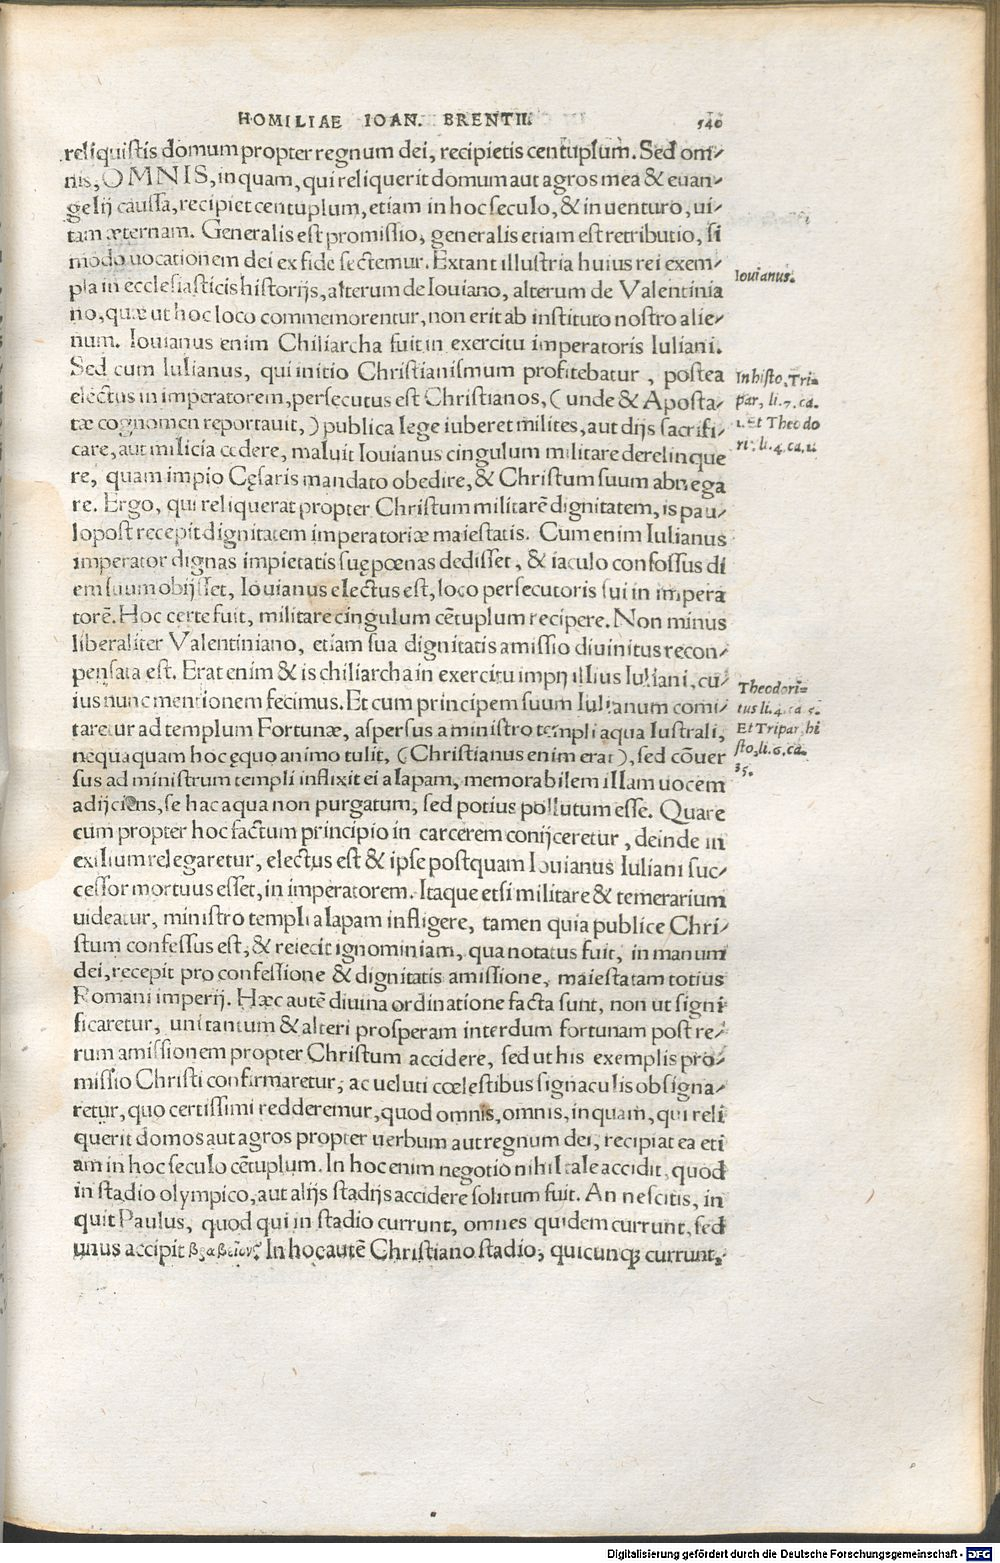 HOMILIAE IOAN. BRENTII. 540
reliquistis domum propter regnum dei, recipietis centuplum. Sed om⸗
nis, OMNIS, inquam, qui reliquerit domum aut agros mea & euan⸗
gelij caussa, recipiet centuplum, etiam in hoc seculo, & in uenturo, ui⸗
tam æternam. Generalis est promissio, generalis etiam est retributio, si
modo uocationem dei ex fide sectemur. Extant illustria huius rei exem⸗
pla in ecclesiasticis historijs, alterum de Iouiano, alterum de Valentinia
no, quæ ut hoc loco commemorentur, non erit ab instituto nostro alie⸗
num. Iouianus enim Chiliarcha fuit in exercitu imperatoris Iuliani.
Sed cum Iulianus, qui initio Christianismum profitebatur, postea
electus in imperatorem, persecutus est Christianos, (unde & Aposta⸗
tæ cognomen reportauit,) publica lege iuberet milites, aut dijs sacrifi⸗
care, aut milicia cedere, maluit Iouianus cingulum militare derelinque
re, quam impio Cęsaris mandato obedire, & Christum suum abnega
re. Ergo, qui reliquerat propter Christum militarē dignitatem, is pau⸗
lo post recepit dignitatem imperatoriæ maiestatis. Cum enim Iulianus
imperator dignas impietatis suę pœnas dedisset, & iaculo confossus di
em suum obijsset, Iouianus electus est, loco persecutoris sui in impera
torē. Hoc certe fuit, militare cingulum cētuplum recipere. Non minus
liberaliter Valentiniano, etiam sua dignitatis amissio diuinitus recon⸗
pensata est. Erat enim & is chiliarcha in exercitu impij illius Iuliani, cu⸗
ius nunc mentionem fecimus. Et cum principem suum Iulianum comi⸗
taretur ad templum Fortunæ, aspersus a ministro templi aqua lustrali,
nequaquam hoc ęquo animo tulit, (Christianus enim erat), sed cōuer
sus ad ministrum templi inflixit ei alapam, memorabilem illam uocem
adijciens, se hac aqua non purgatum, sed potius pollutum esse. Quare
cum propter hoc factum principio in carcerem conijceretur, deinde in
exilium relegaretur, electus est & ipse postquam Iouianus Iuliani suc⸗
cessor mortuus esset, in imperatorem. Itaque etsi militare & temerarium
uideatur, ministro templi alapam infligere, tamen quia publice Chri⸗
stum confessus est, & reiecit ignominiam, qua notatus fuit, in manum
dei, recepit pro confessione & dignitatis amissione, maiestatam totius
Romani imperij. Hæc autē diuina ordinatione facta sunt, non ut signi
ficaretur, uni tantum & alteri prosperam interdum fortunam post re⸗
rum amissionem propter Christum accidere, sed ut his exemplis pro⸗
missio Christi confirmaretur, ac ueluti cœlestibus signaculis obsigna⸗
retur, quo certissimi redderemur, quod omnis, omnis, inquam, qui reli
querit domos aut agros propter uerbum aut regnum dei, recipiat ea eti
am in hoc seculo cētuplum. In hoc enim negotio nihil tale accidit, quod
in stadio olympico, aut alijs stadijs accidere solitum fuit. An nescitis, in
quit Paulus, quod qui in stadio currunt, omnes quidem currunt, sed
unus accipit In hoc autē Christiano stadio, quicunq; currunt,
Iouianus.
In histo, Tri⸗
par, li. 7. ca.
1. Et Theodo
ri. li. 4. ca. 11
Theodori⸗
tus li. 4. ca 5.
Et Tripar. hi
sto, li. 6. ca.
35.
Digitalisierung gefördert durch die Deutsche Forschungsgemeinschaft - DFG